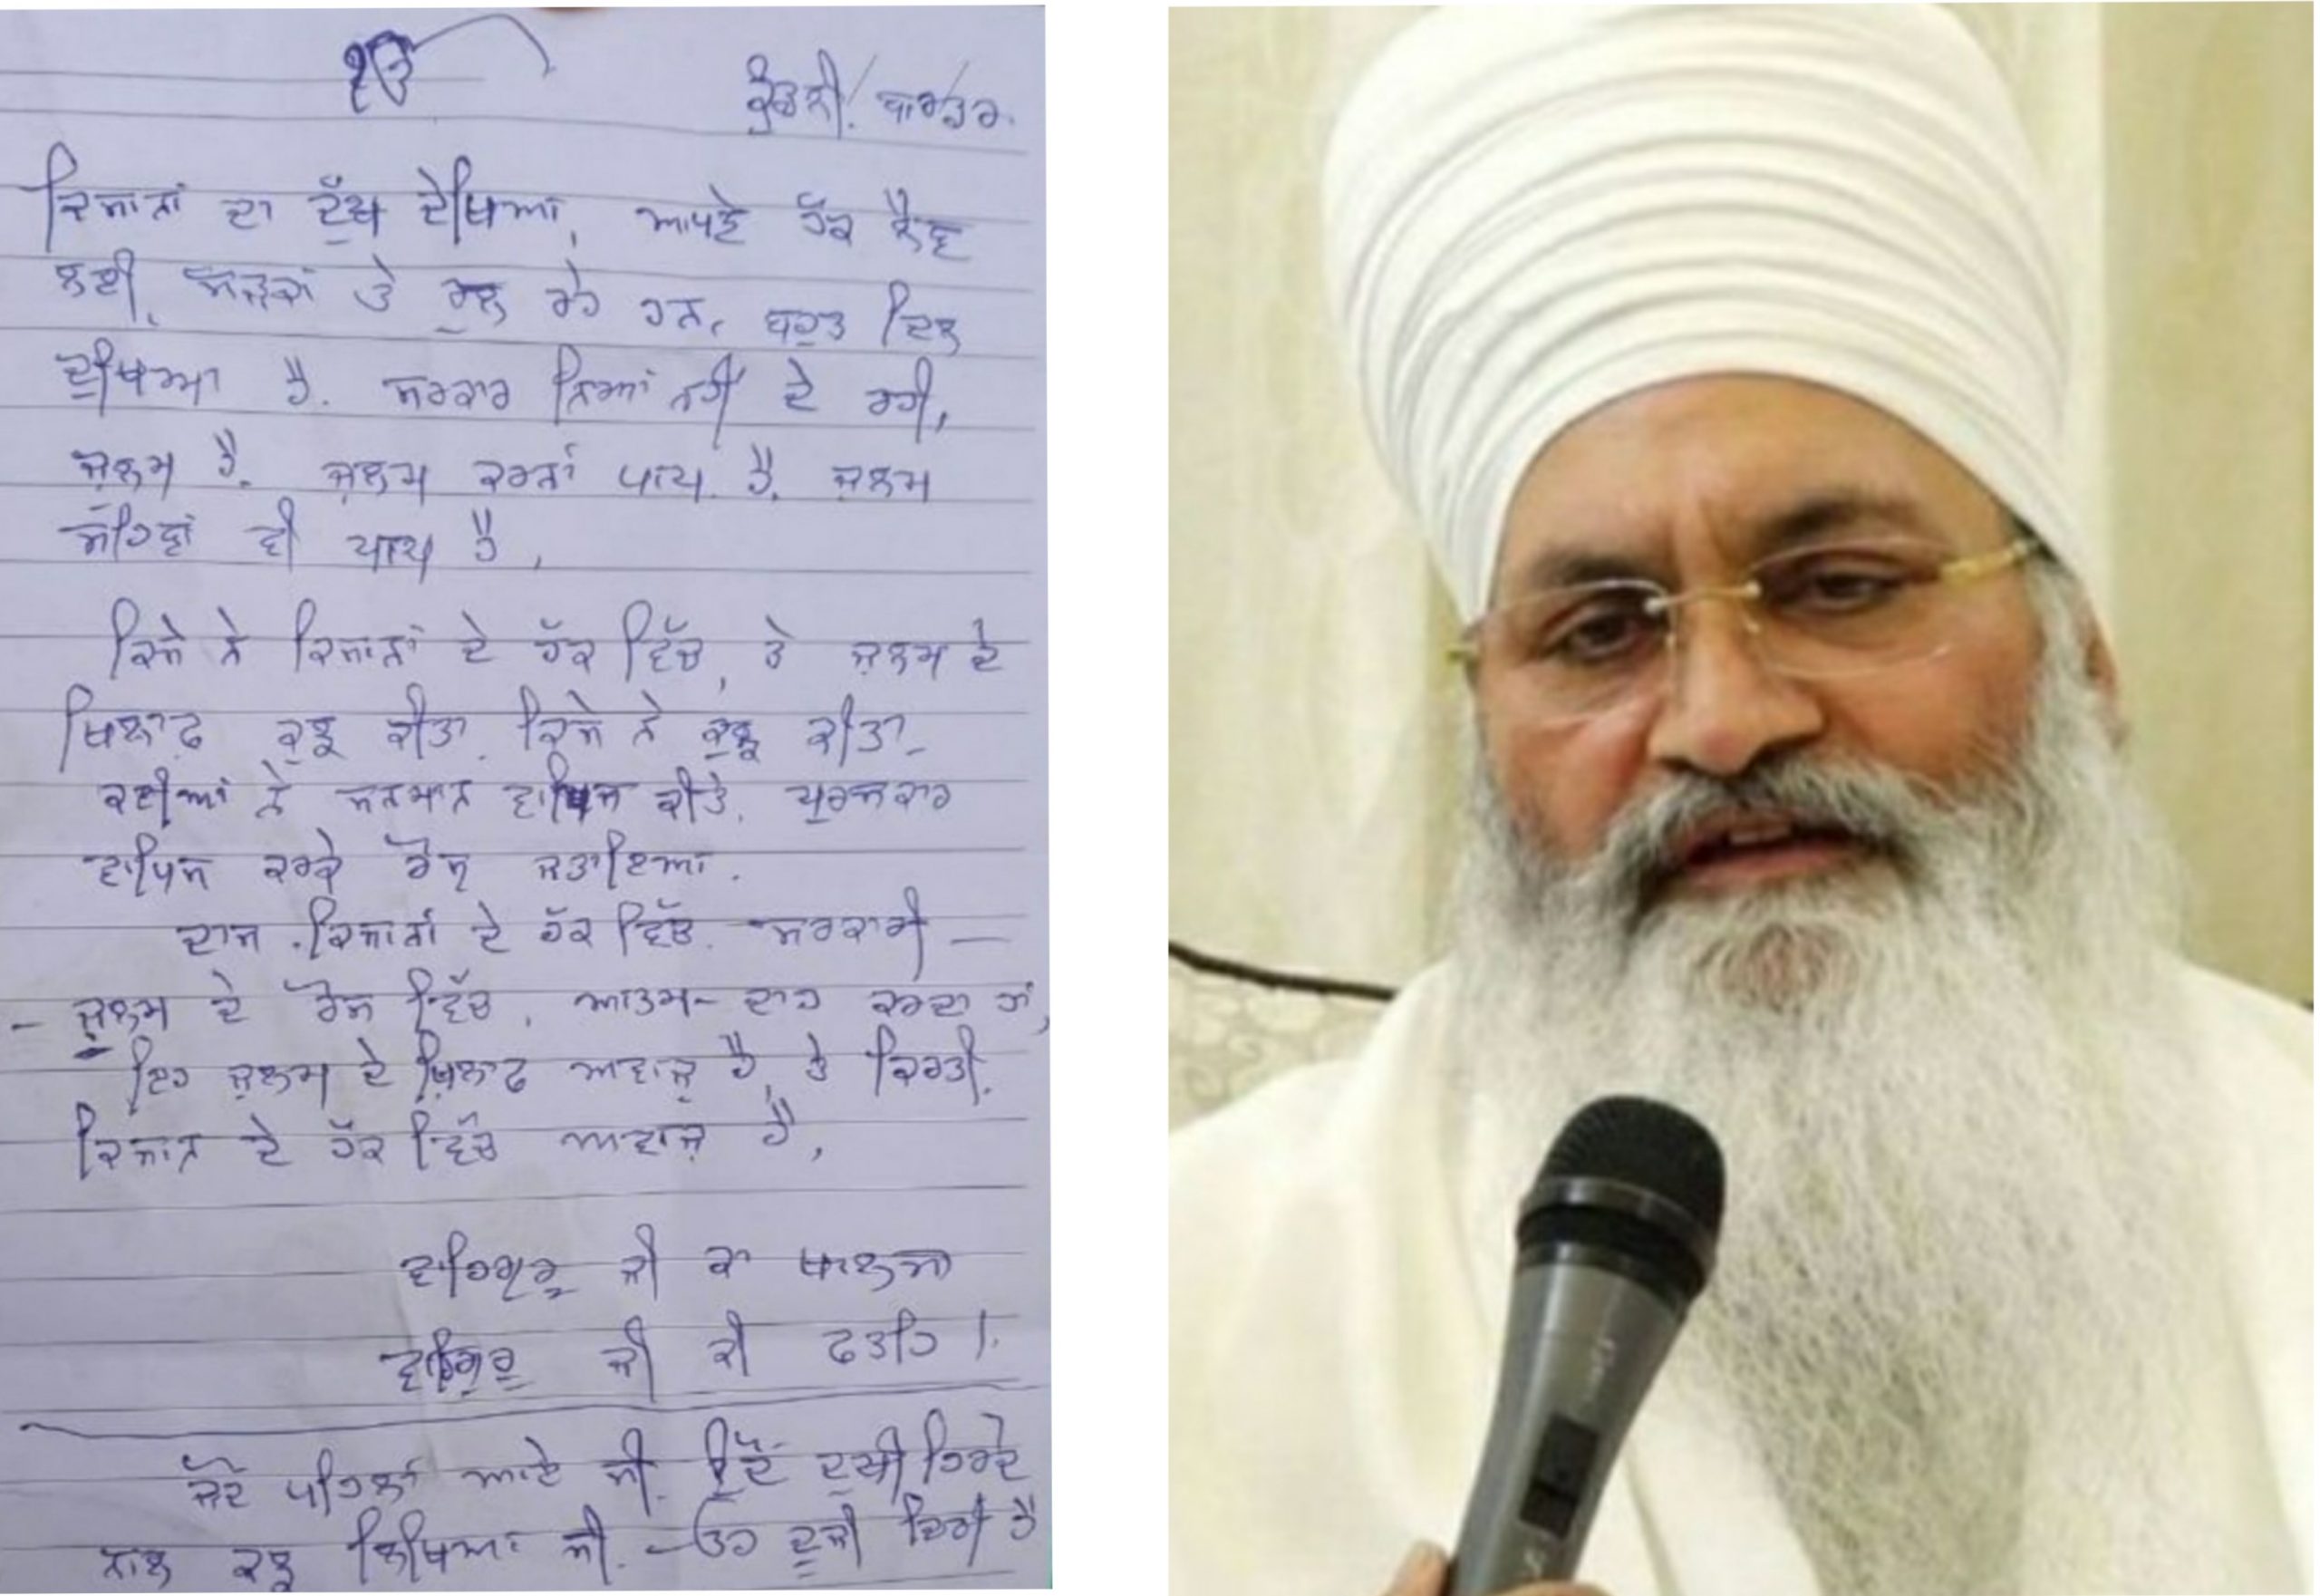 ੴ
ਕੁੰਡਲੀ. ਬਾਰਡਰ.
ਕਿਸਾਨਾਂ ਦਾ ਦੁੱਖ ਦੇਖਿਆ, ਆਪਣੇ ਹੱਕ ਲੈਣ
ਲਈ, ਸੜਕਾਂ ਤੇ ਰੁਲ ਰਹੇ ਹਨ, ਬਹੁਤ ਦਿਲ
ਦੁਖਿਆ ਹੈ. ਸਰਕਾਰ ਨਿਆਂ ਨਹੀਂ ਦੇ ਰਹੀ,
ਜ਼ੁਲਮ ਹੈ. ਜ਼ੁਲਮ ਕਰਨਾਂ ਪਾਪ ਹੈ. ਜ਼ੁਲਮ
ਸਹਿਣਾਂ ਵੀ ਪਾਪ ਹੈ,
ਕਿਸੇ ਨੇ ਕਿਸਾਨਾਂ ਦੇ ਹੱਕ ਵਿੱਚ, ਤੇ ਜ਼ੁਲਮ ਦੇ
ਖਿਲਾਫ਼ ਕੁਛ ਕੀਤਾ. ਕਿਸੇ ਨੇ ਕੁਛ ਕੀਤਾ
ਕਈਆਂ ਨੇ ਸਨਮਾਨ ਵਾਪਿਸ ਕੀਤੇ. ਪੁਰਸਕਾਰ
ਵਾਪਿਸ ਕਰਕੇ ਰੋਸ ਜਤਾਇਆ.
ਦਾਸ. ਕਿਸਾਨਾਂ ਦੇ ਹੱਕ ਵਿੱਚ. ਸਰਕਾਰੀ —
— ਜ਼ੁਲਮ ਦੇ ਰੋਸ ਵਿੱਚ. ਆਤਮ-ਦਾਹ ਕਰਦਾ ਹਾਂ,
ਇਹ ਜ਼ੁਲਮ ਦੇ ਖ਼ਿਲਾਫ ਅਵਾਜ਼ ਹੈ, ਤੇ ਕਿਰਤੀ.
ਕਿਸਾਨ ਦੇ ਹੱਕ ਵਿੱਚ ਅਵਾਜ਼ ਹੈ,
ਵਾਹਿਗੁਰੂ ਜੀ ਕਾ ਖਾਲਸਾ
ਵਾਹਿਗੁਰੂ ਜੀ ਕੀ ਫਤਹਿ।
ਪਹਿਲਾਂ ਆਏ ਸੀ. ਦੁਖੀ ਹਿਰਦੇ
ਨਾਲ ਕੁਛ ਲਿਖਿਆ ਸੀ. ਉਹ ਦੂਜੀ ਹੈ